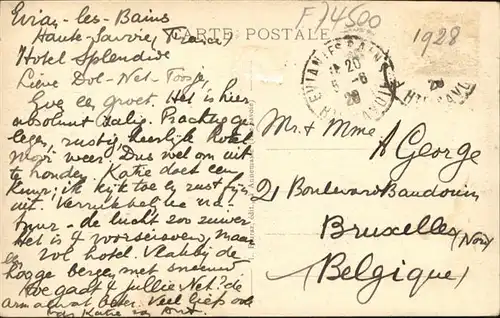 Evian-les-Bains
Haute-Savoie, (France)
Hotel Splendide
CARTE POSTALE
F/4500
1928
EVIAN LES BAINS
20
28
Lieve Dol-Net-Toosje,
Eve een groet. Het is hier
absoluut zalig. Prachtig ge-
legen, rustig, heerlijk hotel
mooi weer. Dus wel om uit
te houden. Katie doet een
kuur; ik kijk toe en rust fijn
uit. Verrukkelijke
- de lucht zoo zuiver
Het is 4 maar
vol hotel. Vlakbij de
hooge bergen met sneeuw
Hoe gaat 't jullie Net? de
arm al wat beter. Veel liefs ook
van Katie
Mr. & Mme
A George
21 Boulevard Baudouin
Bruxelles (Nord)
(Belgique)